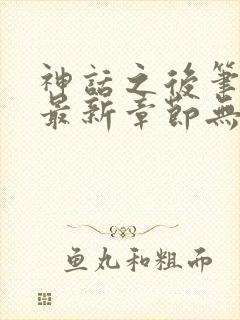 神話之後筆
最新章節無
鱼丸和粗面